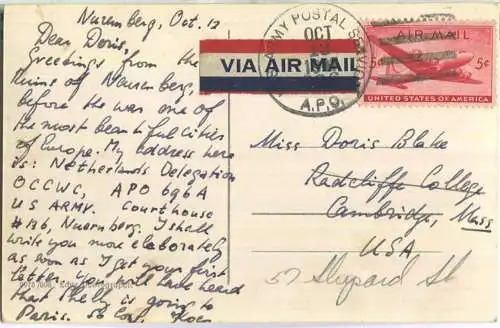 Nuremberg, Oct. 13
Dear Doris,
Greetings from the
Ruins of Nuremberg,
before the war one of
the most beautiful cities
of Europe. My address here
is: Netherlands Delegation
OCCWC, APO 696A
US ARMY. Courthouse
Nuernberg. I shall
write you more elaborately
as soon as I get your first
letter. You will have heard
that Shelly is going to
Paris.
ARMY POSTAL SERVICE
OCT
13
A.P.O.
VIA AIR MAIL
AIR MAIL
5¢ 5¢
UNITED STATES OF AMERICA
Miss Doris Blake
Radcliffe College
Cambridge, Mass
USA,
57 Shepard St